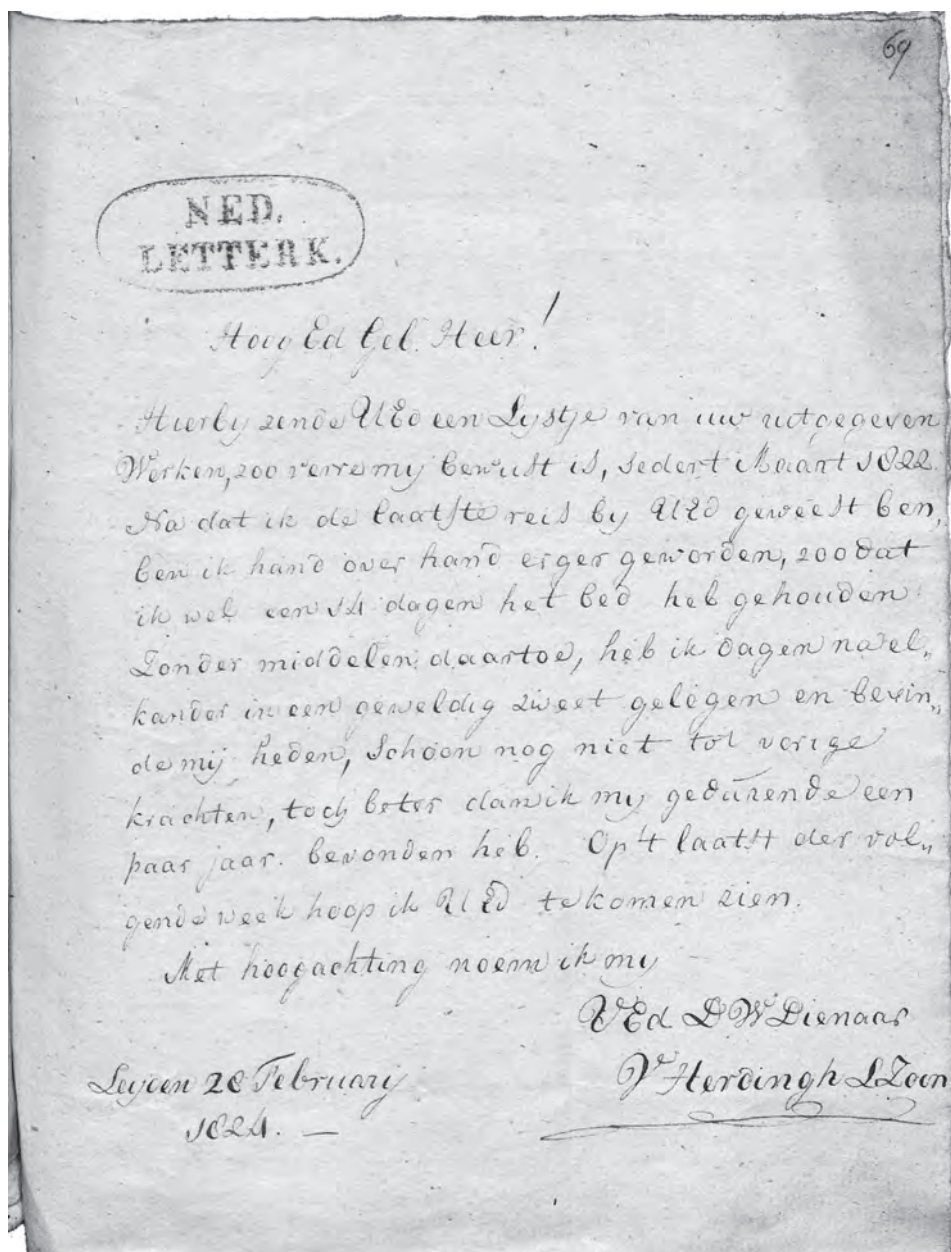 69
NED.
LETTERK.
Hoog Ed Geb. Heer!
Hierby zende UEd een Lystje van uw uitgegeven
Werken, zoo verre my bewust is, sedert Maart 1822.
Na dat ik de laatste reis by UEd geweest ben,
ben ik hand over hand erger geworden, zoo dat
ik wel een 14 dagen het bed heb gehouden:
Zonder middelen daartoe, heb ik dagen na el„
kander in een geweldig zweet gelegen en bevin„
de mij heden, Schoon nog niet tot vorige
krachten, toch beter dan ik my gedurende een
paar jaar. bevonden heb. Op 't laatst der vol„
gende week hoop ik UEd te komen zien.
Met hoogachting noem ik my
UEd DW Dienaar
Herdingh LZoon
Leyden 28 February
1824. —